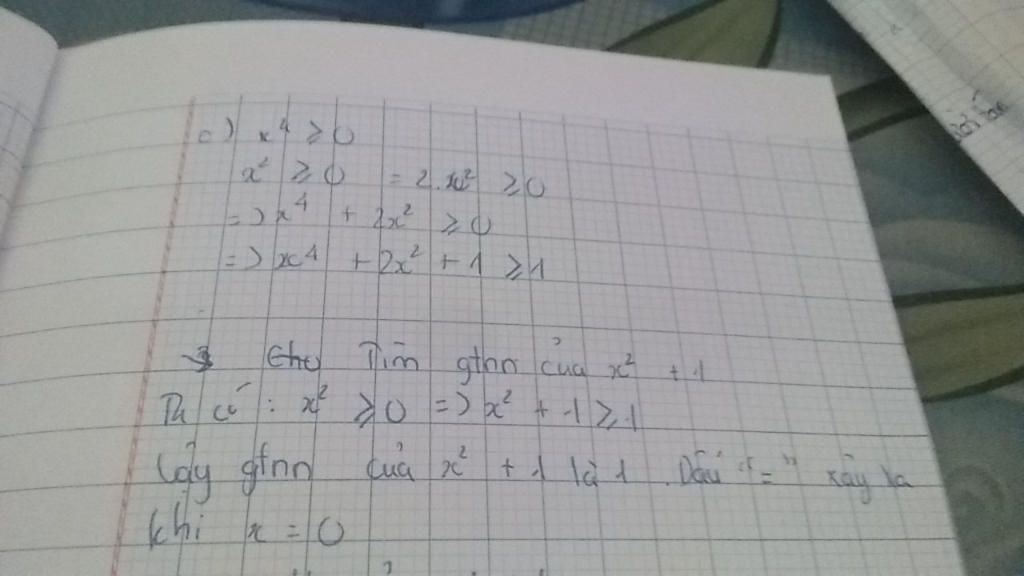 c) x⁴ ≥ 0
x² ≥ 0 = 2.x² ≥ 0
=> x⁴ + 2x² ≥ 0
=> x⁴ + 2x² + 1 ≥ 1
Tìm gtnn của x² + 1
Ta có : x² ≥ 0 => x² + 1 ≥ 1
Vậy gtnn của x² + 1 là 1. Dấu "=" xảy ra
khi x = 0